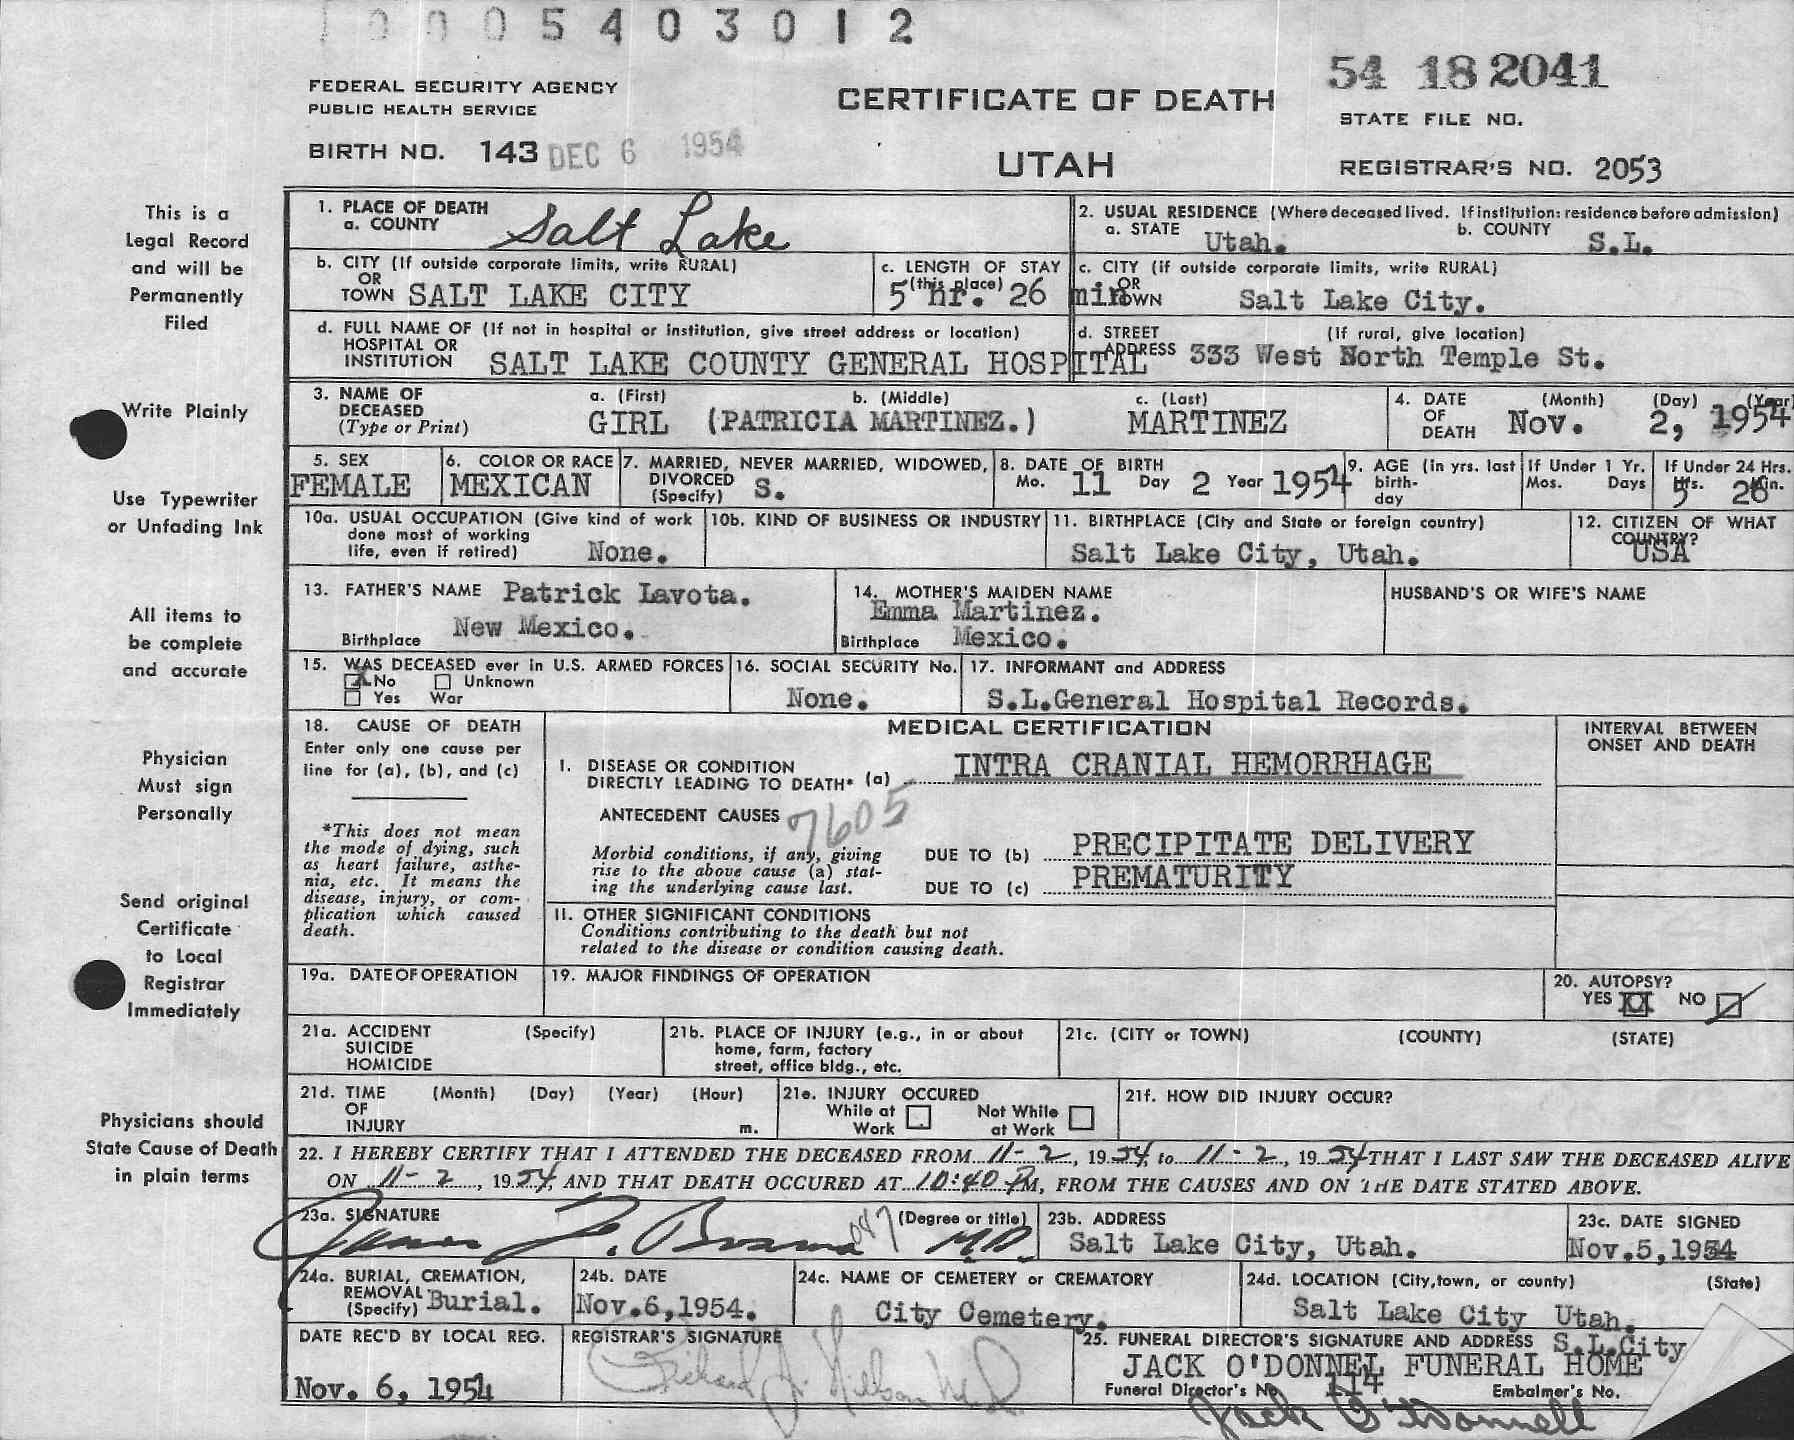 10005403012
54 18 2041
FEDERAL SECURITY AGENCY
PUBLIC HEALTH SERVICE
CERTIFICATE OF DEATH
STATE FILE NO.
BIRTH NO. 143 DEC 6 1954
UTAH
REGISTRAR'S NO. 2053
This is a
Legal Record
and will be
Permanently
Filed
Write Plainly
Use Typewriter
or Unfading Ink
All items to
be complete
and accurate
Physician
Must sign
Personally
Send original
Certificate
to Local
Registrar
Immediately
Physicians should
State Cause of Death
in plain terms
1. PLACE OF DEATH
a. COUNTY Salt Lake
2. USUAL RESIDENCE (Where deceased lived. If institution: residence before admission)
a. STATE Utah. b. COUNTY S.L.
b. CITY (If outside corporate limits, write RURAL)
OR
TOWN SALT LAKE CITY
c. LENGTH OF STAY
(this place) 5 hr. 26 min
c. CITY (if outside corporate limits, write RURAL)
OR
TOWN Salt Lake City.
d. FULL NAME OF (If not in hospital or institution, give street address or location)
HOSPITAL OR
INSTITUTION SALT LAKE COUNTY GENERAL HOSPITAL
d. STREET (If rural, give location)
ADDRESS 333 West North Temple St.
3. NAME OF
DECEASED
(Type or Print)
a. (First) b. (Middle) c. (Last)
GIRL (PATRICIA MARTINEZ.) MARTINEZ
4. DATE
OF
DEATH
(Month) (Day) (Year)
Nov. 2, 1954
5. SEX
FEMALE
6. COLOR OR RACE
MEXICAN
7. MARRIED, NEVER MARRIED, WIDOWED,
DIVORCED
(Specify) S.
8. DATE OF BIRTH
Mo. 11 Day 2 Year 1954
9. AGE (in yrs. last
birth-
day
If Under 1 Yr.
Mos. Days
If Under 24 Hrs.
Hrs. Min.
5 26
10a. USUAL OCCUPATION (Give kind of work
done most of working
life, even if retired) None.
10b. KIND OF BUSINESS OR INDUSTRY
11. BIRTHPLACE (City and State or foreign country)
Salt Lake City, Utah.
12. CITIZEN OF WHAT
COUNTRY?
USA
13. FATHER'S NAME Patrick Lavota.
Birthplace New Mexico.
14. MOTHER'S MAIDEN NAME
Emma Martinez.
Birthplace Mexico.
HUSBAND'S OR WIFE'S NAME
15. WAS DECEASED ever in U.S. ARMED FORCES
X No Unknown
Yes War
16. SOCIAL SECURITY No.
None.
17. INFORMANT and ADDRESS
S.L.General Hospital Records.
18. CAUSE OF DEATH
Enter only one cause per
line for (a), (b), and (c)
*This does not mean
the mode of dying, such
as heart failure, asthe-
nia, etc. It means the
disease, injury, or com-
plication which caused
death.
MEDICAL CERTIFICATION
INTERVAL BETWEEN
ONSET AND DEATH
I. DISEASE OR CONDITION
DIRECTLY LEADING TO DEATH* (a) INTRA CRANIAL HEMORRHAGE
ANTECEDENT CAUSES 7605
Morbid conditions, if any, giving
rise to the above cause (a) stat-
ing the underlying cause last.
DUE TO (b) PRECIPITATE DELIVERY
DUE TO (c) PREMATURITY
II. OTHER SIGNIFICANT CONDITIONS
Conditions contributing to the death but not
related to the disease or condition causing death.
19a. DATE OF OPERATION
19. MAJOR FINDINGS OF OPERATION
20. AUTOPSY?
YES NO
21a. ACCIDENT (Specify)
SUICIDE
HOMICIDE
21b. PLACE OF INJURY (e.g., in or about
home, farm, factory
street, office bldg., etc.
21c. (CITY or TOWN) (COUNTY) (STATE)
21d. TIME (Month) (Day) (Year) (Hour)
OF
INJURY m.
21e. INJURY OCCURED
While at Work
Not While at Work
21f. HOW DID INJURY OCCUR?
22. I HEREBY CERTIFY THAT I ATTENDED THE DECEASED FROM 11-2, 1954, to 11-2, 1954 THAT I LAST SAW THE DECEASED ALIVE
ON 11-2, 1954, AND THAT DEATH OCCURED AT 10:40 PM, FROM THE CAUSES AND ON THE DATE STATED ABOVE.
23a. SIGNATURE (Degree or title)
James M.D.
23b. ADDRESS
Salt Lake City, Utah.
23c. DATE SIGNED
Nov.5,1954
24a. BURIAL, CREMATION,
REMOVAL
(Specify) Burial.
24b. DATE
Nov.6,1954.
24c. NAME OF CEMETERY or CREMATORY
City Cemetery.
24d. LOCATION (City,town, or county) (State)
Salt Lake City Utah.
DATE REC'D BY LOCAL REG.
Nov. 6, 1954
REGISTRAR'S SIGNATURE
25. FUNERAL DIRECTOR'S SIGNATURE AND ADDRESS S.L.City
JACK O'DONNEL FUNERAL HOME
Funeral Director's No. 114 Embalmer's No.
Jack O'Donnell